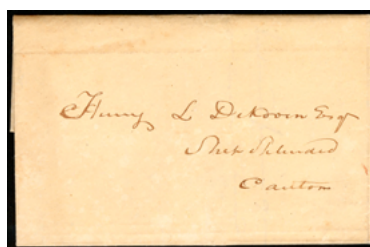 Henry L DeKoven Esqr
Ship Splendid
Canton